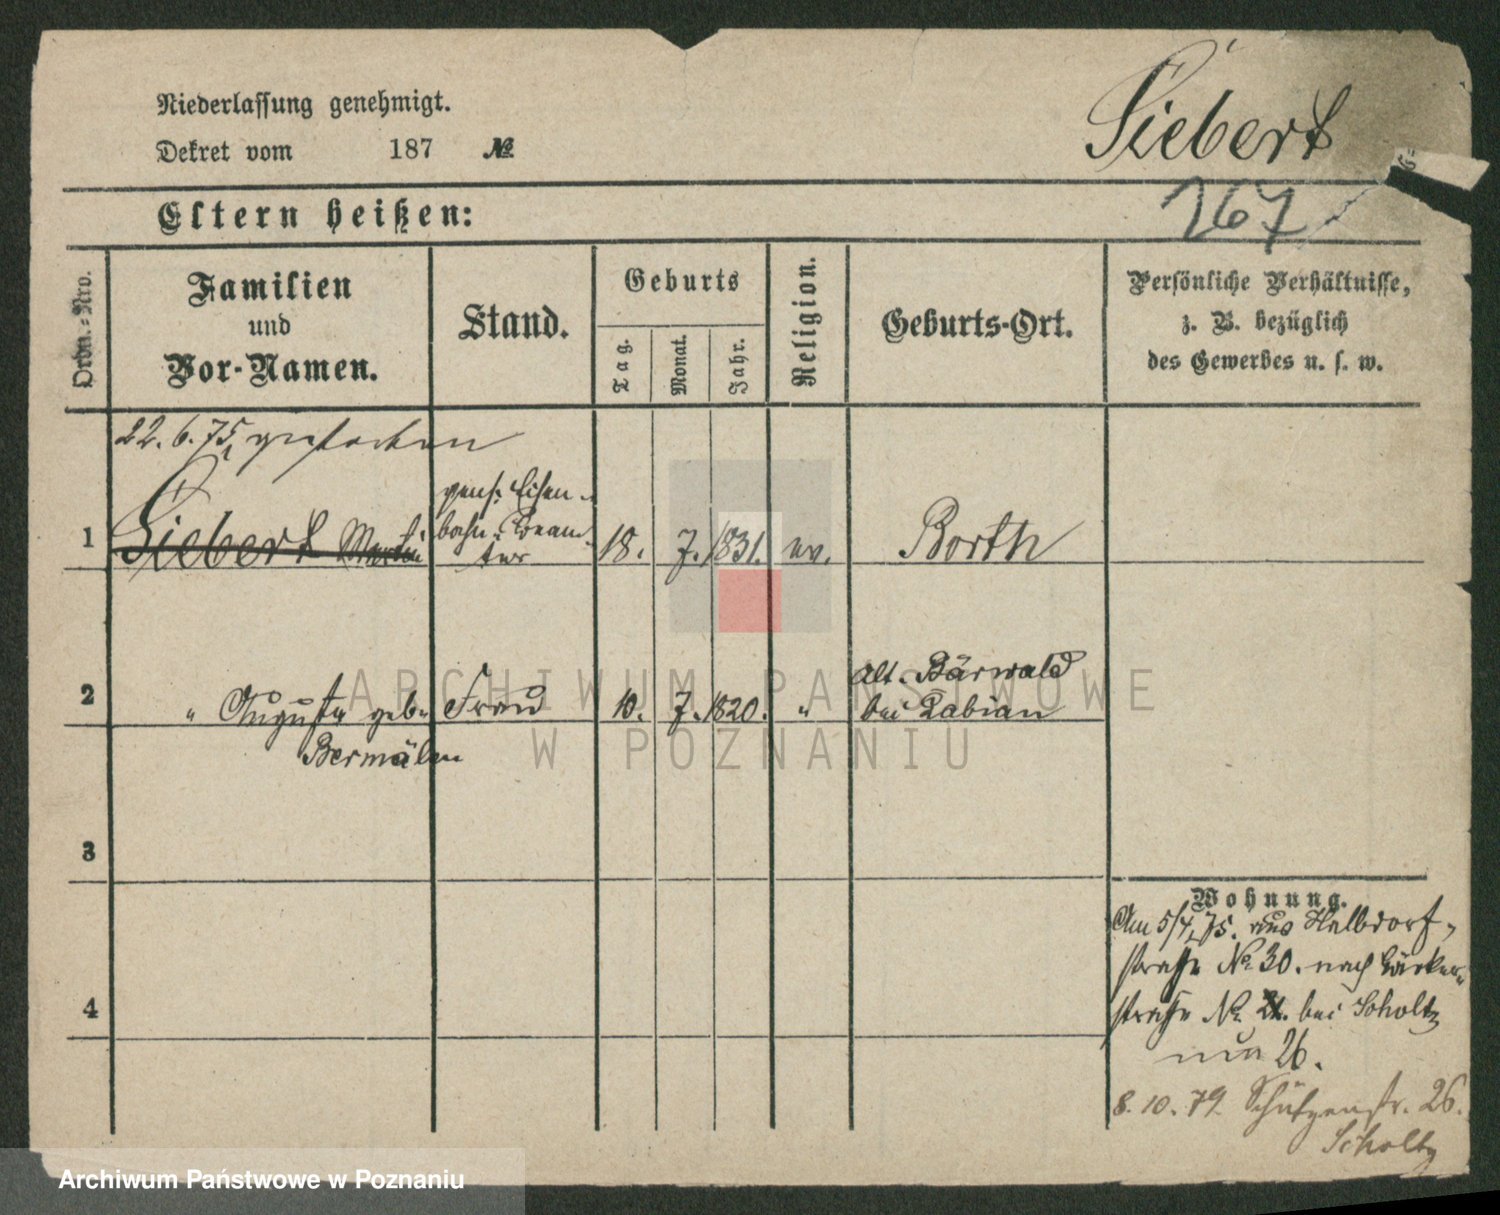 Niederlassung genehmigt.
Siebert
Dekret vom 187 №
267
Eltern heißen:
Ordn.=Nro.
Familien
und
Vor-Namen.
Stand.
Geburts
Tag.
Monat.
Jahr.
Religion.
Geburts-Ort.
Persönliche Verhältnisse,
z. B. bezüglich
des Gewerbes u. s. w.
22. 6. 75, gestorben
1 Siebert Martin
pens. Eisen-
bahn-Beam-
ter
18. 7. 1831. ev. Borth
2 " Auguste geb. Frau 10. 7. 1820. "
Bermälen
Alt. Bärwald
bei Labian
3
4
Wohnung.
Am 5/4. 75. aus Halbdorf-
straße № 30. nach Bäcker-
straße №. bei Scholtz
nun 26.
8. 10. 79. Schützenstr. 26.
Scholtz
ARCHIWUM PAŃSTWOWE
W POZNANIU
Archiwum Państwowe w Poznaniu